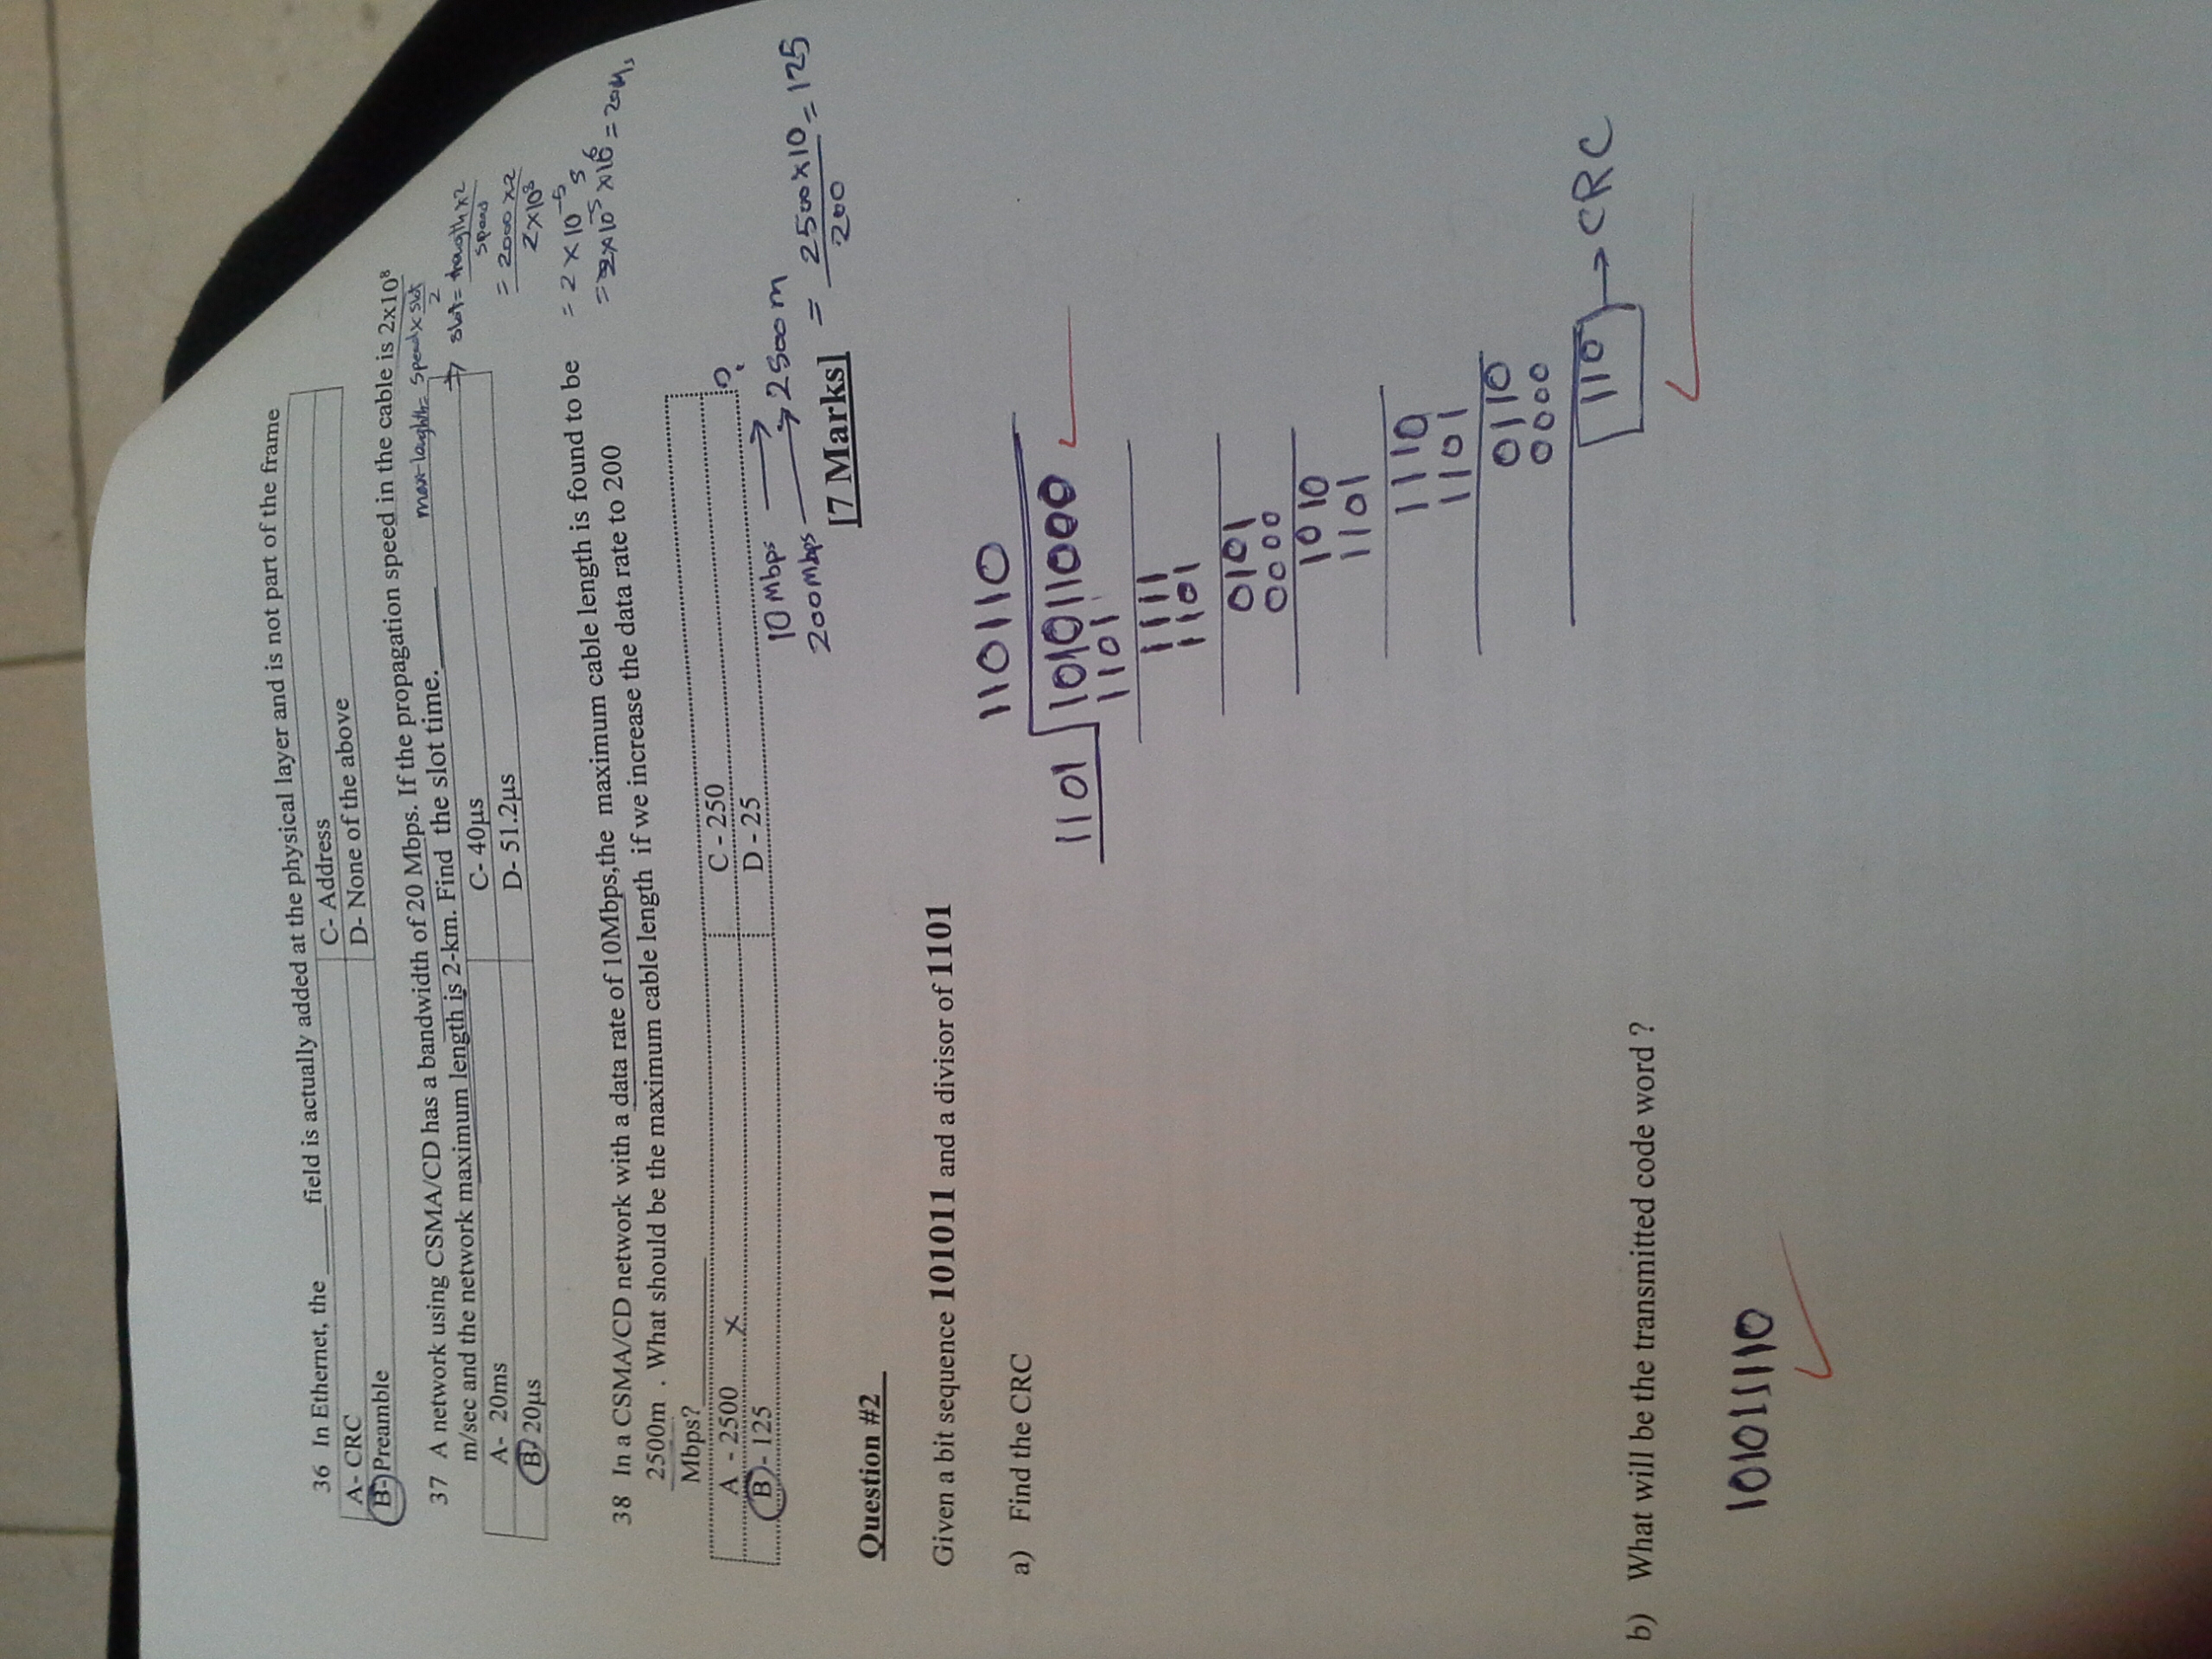 36 In Ethernet, the _____field is actually added at the physical layer and is not part of the frame
A- CRC
C- Address
B- Preamble
D- None of the above
37 A network using CSMA/CD has a bandwidth of 20 Mbps. If the propagation speed in the cable is 2x10⁸
m/sec and the network maximum length is 2-km. Find the slot time.______
A- 20ms
C- 40µs
B- 20µs
D- 51.2µs
= speed x slot
2
slot =
x2
speed
= 2000 x2
2x10⁸
= 2 x 10⁻⁵ s
38 In a CSMA/CD network with a data rate of 10Mbps,the maximum cable length is found to be
2500m . What should be the maximum cable length if we increase the data rate to 200
Mbps?___________
A - 2500 x
C - 250
B - 125
D - 25
?
10 Mbps
200 Mbps → 2500m
= 2500x10 = 125
200
[7 Marks]
Question #2
Given a bit sequence 101011 and a divisor of 1101
a) Find the CRC
110110
1101 101011000
1101
1111
1101
0101
0000
1010
1101
1110
1101
0110
0000
110 → CRC
b) What will be the transmitted code word ?
101011110